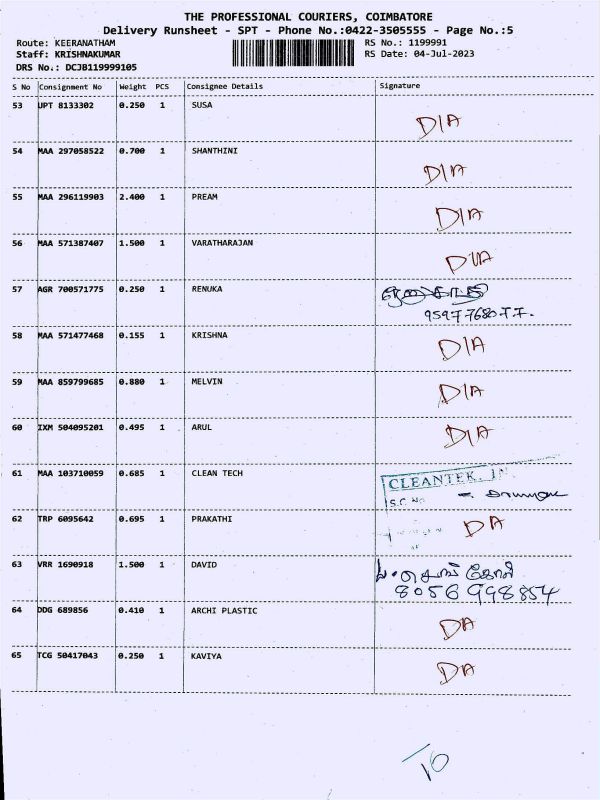 THE PROFESSIONAL COURIERS, COIMBATORE
Delivery Runsheet - SPT - Phone No.:0422-3505555 - Page No.:5
Route: KEERANATHAM RS No.: 1199991
Staff: KRISHNAKUMAR RS Date: 04-Jul-2023
DRS No.: DCJB119999105
S No Consignment No Weight PCS Consignee Details Signature
53 UPT 8133302 0.250 1 SUSA
D/A
54 MAA 297058522 0.700 1 SHANTHINI
D/A
55 MAA 296119903 2.400 1 PREAM
D/A
56 MAA 571387407 1.500 1 VARATHARAJAN
D/A
57 AGR 700571775 0.250 1 RENUKA
58 MAA 571477468 0.155 1 KRISHNA
D/A
59 MAA 859799685 0.880 1 MELVIN
D/A
60 IXM 504095201 0.495 1 ARUL
D/A
61 MAA 103710059 0.685 1 CLEAN TECH
CLEANTEK
S.C. No
62 TRP 6095642 0.695 1 PRAKATHI
DA
63 VRR 1690918 1.500 1 DAVID
8056 998854
64 DDG 689856 0.410 1 ARCHI PLASTIC
DA
65 TCG 50417043 0.250 1 KAVIYA
DA